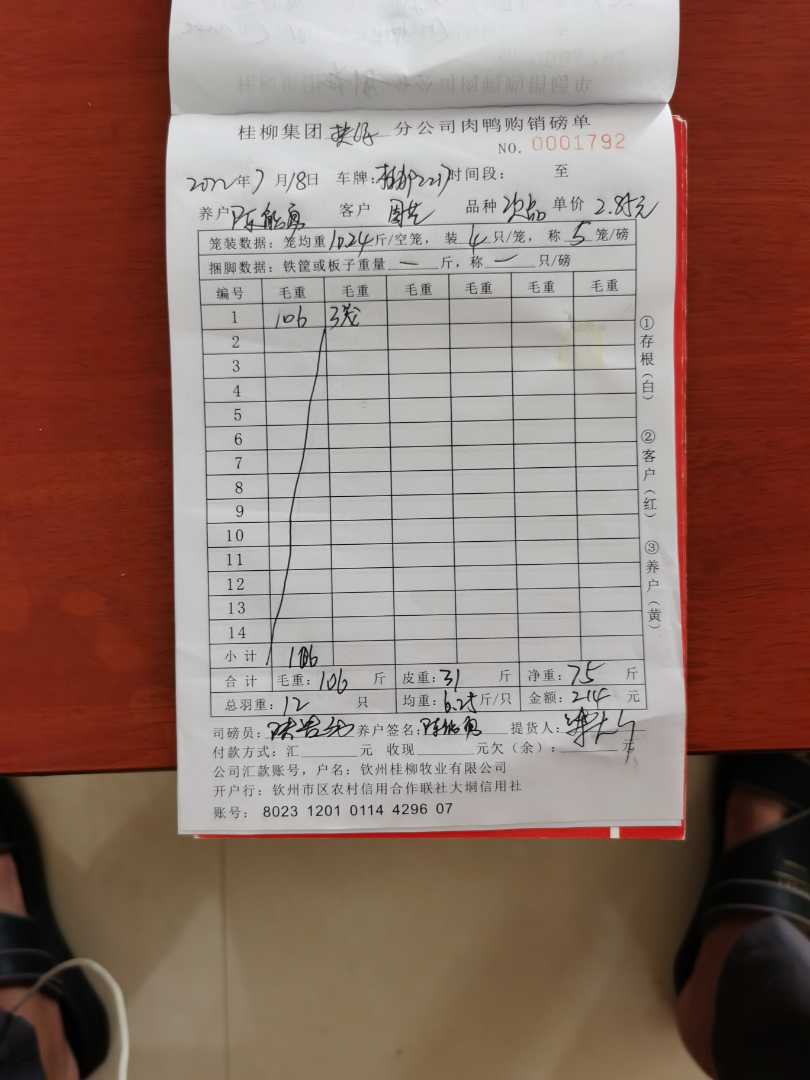 桂柳集团 分公司肉鸭购销磅单
NO. 0001792
2022年7月18日 车牌: 2217 时间段: 至
养户 陈能勇 客户 周芝 品种 次品 单价 2.85元
笼装数据: 笼均重10.24斤/空笼, 装4只/笼, 称5笼/磅
捆脚数据: 铁筐或板子重量一斤, 称一只/磅
编号 毛重 毛重 毛重 毛重 毛重 毛重
1 106 3笼
2
3
4
5
6
7
8
9
10
11
12
13
14
小计 106
合计 毛重: 106 斤 皮重: 31 斤 净重: 75 斤
总羽重: 12 只 均重: 6.25斤/只 金额: 214 元
司磅员: 养户签名: 陈能勇 提货人:
付款方式: 汇 元 收现 元欠(余): 元
公司汇款账号, 户名: 钦州桂柳牧业有限公司
开户行: 钦州市区农村信用合作联社大垌信用社
账号: 8023 1201 0114 4296 07
①存根(白)
②客户(红)
③养户(黄)